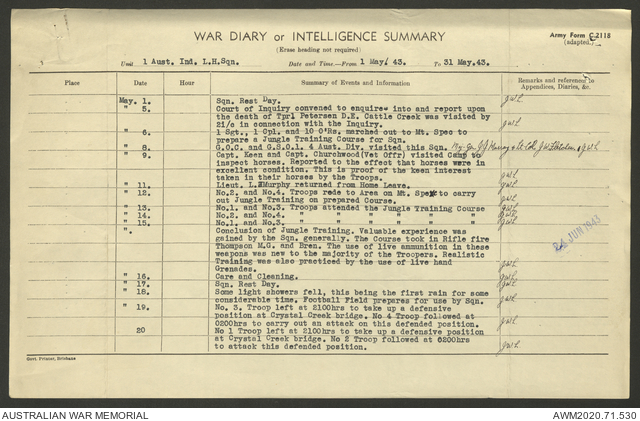 WAR DIARY or INTELLIGENCE SUMMARY
(Erase heading not required)
Army Form C.2118
(adapted)
Unit 1 Aust. Ind. L.H.Sqn. Date and Time—From 1 May. 43. To 31 May.43.
Place Date Hour Summary of Events and Information Remarks and references to Appendices, Diaries, &c.
May. 1. Sqn. Rest Day. JWL
" 5. Court of Inquiry convened to enquire into and report upon
the death of Tprl Petersen D.E. Cattle Creek was visited by
2i/c in connection with the Inquiry. JWL
" 6. 1 Sgt., 1 Cpl, and 10 O'Rs, marched out to Mt. Spec to
prepare a Jungle Training Course for Sqn. JWL
" 8. G.O.C. and G.S.O.1. 4 Aust. Div. visited this Sqn. Brig-Gen J.J. Murray & Lt Col J.W. JWL
" 9. Capt. Keen and Capt. Churchwood(Vet Offr) visited Camp to
inspect horses. Reported to the effect that horses were in
excellent condition. This is proof of the keen interest
taken in their horses by the Troops. JWL
" 11. Lieut. L. Murphy returned from Home Leave. JWL
" 12. No.2, and No.4. Troops rode to Area on Mt. Spec to carry
out Jungle Training on prepared Course. JWL
" 13. No.1. and No.3. Troops attended the Jungle Training Course JWL
" 14. No.2. and No.4. " " " " " " JWL
" 15. No.1. and No.3. " " " " " " JWL
". Conclusion of Jungle Training. Valuable experience was
gained by the Sqn. generally. The Course took in Rifle fire
Thompson M.G. and Bren. The use of live ammunition in these
weapons was new to the majority of the Troopers. Realistic
Training was also practiced by the use of live hand
Grenades. JWL
" 16. Care and Cleaning. JWL
" 17. Sqn. Rest Day. JWL
" 18. Some light showers fell, this being the first rain for some
considerable time. Football Field prepares for use by Sqn. JWL
" 19. No. 3. Troop left at 2100hrs to take up a defensive
position at Crystal Creek bridge. No 4 Troop followed at
0200hrs to carry out an attack on this defended position. JWL
20 No 1 Troop left at 2100hrs to take up a defensive position
at Crystal Creek bridge. No 2 Troop followed at 0200hrs
to attack this defended position. JWL
JUN 1943
Govt. Printer, Brisbane
AUSTRALIAN WAR MEMORIAL
AWM2020.71.530